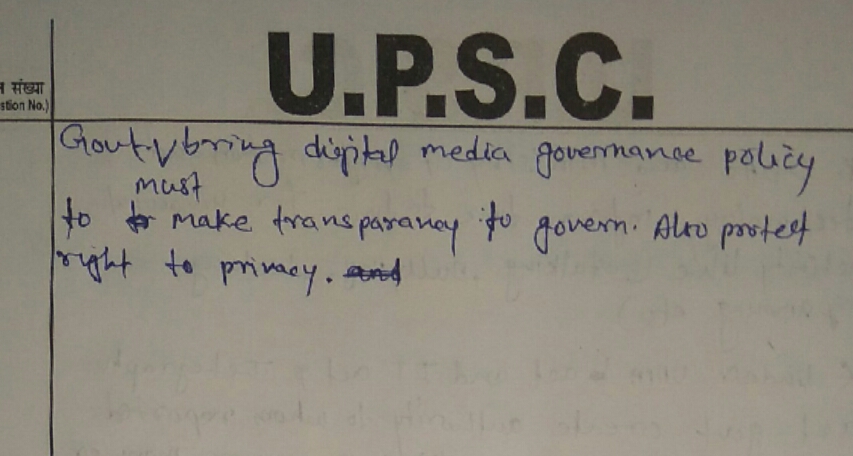 न संख्या
stion No.)
U.P.S.C.
Govt. must bring digital media governance policy
to make transparancy to govern. Also protect
right to privacy.